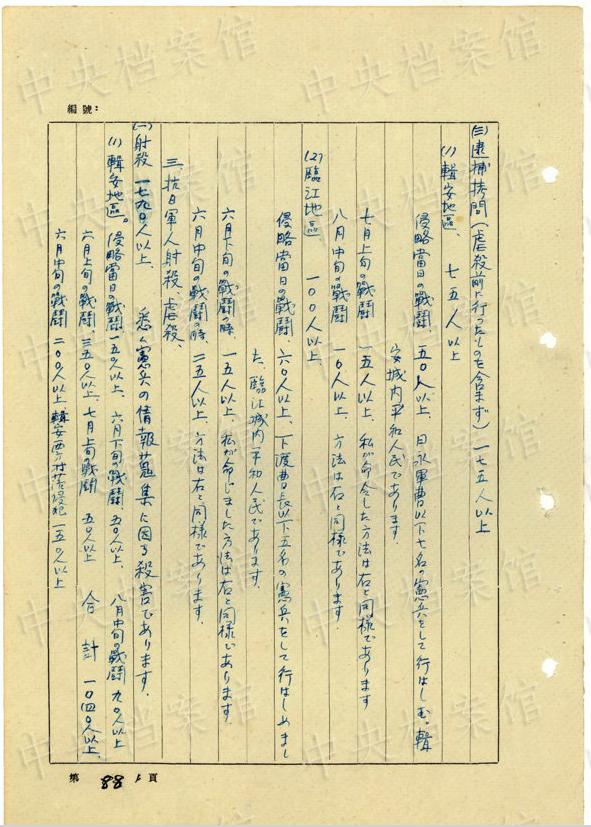 編號:
(三)逮捕拷問(虐殺前に行ったものを含まず)一七五人以上
(1)輯安地區、七五人以上
侵略當日の戰鬪、五〇人以上、日永軍曹以下七名の憲兵をして行はしむ。輯
安城内平和人民であります。
七月上旬の戰鬪 一五人以上、私が命令した方法は右と同様であります
八月中旬の戰鬪 一〇人以上、方法は右と同様であります。
(2)臨江地區 一〇〇人以上
侵略當日の戰鬪、六〇人以上、下渡曹長以下五名の憲兵をして行はしめまし
た、臨江城内平和人民であります。
六月下旬の戰鬪の時、一五人以上、私が命じました方法は右と同様であります
六月中旬の戰鬪の時 二五人以上、方法は右と同様であります。
三、抗日軍人射殺、虐殺、
(一)射殺 一七九〇人以上、悉く憲兵の情報蒐集に因る殺害であります。
(1)輯安地區。侵略當日の戰鬪 一五〇人以上、六月下旬の戰鬪、五〇人以上、八月中旬の戰鬪 九〇人以上
六月上旬の戰鬪 三五〇人以上、七月上旬の戰鬪 五〇人以上 合計 一〇四〇人以上、
六月中旬の戰鬪 二〇〇人以上、輯安西方村落侵犯 一五〇人以上
第 88 頁
中央档案馆